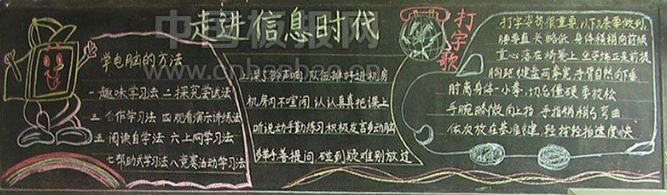 走进信息时代
学电脑的方法
一趣味学习法 二探究学试法
三合作学习法 四观看演示讲练法
五阅读自学法 六上网学习法
七帮助式学习法 八竞赛活动学习法
上课了铃声响 队伍排好进机房
机房内不喧闹 认认真真把课上
听说动手勤练习 积极发言多动脑
多动手善提问 碰到疑难别放过
打字歌
打字姿势很重要 以下各条要做到
腰要直长略低 身体稍稍向前倾
重心落在椅凳上 坐字端正是前提
胸距键盘两拳宽 手臂自然向下垂
时离身体一小拳 切忌僵硬要放松
手腕略微向上抬 手指稍稍弯曲
依次放在基准键 轻打轻抬速度快
中国板报网
www.cnbanbao.cn